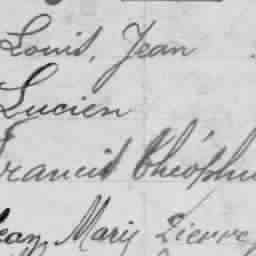 Louis, Jean
Lucien
Francis Théophi
Jean Marie Pierre,